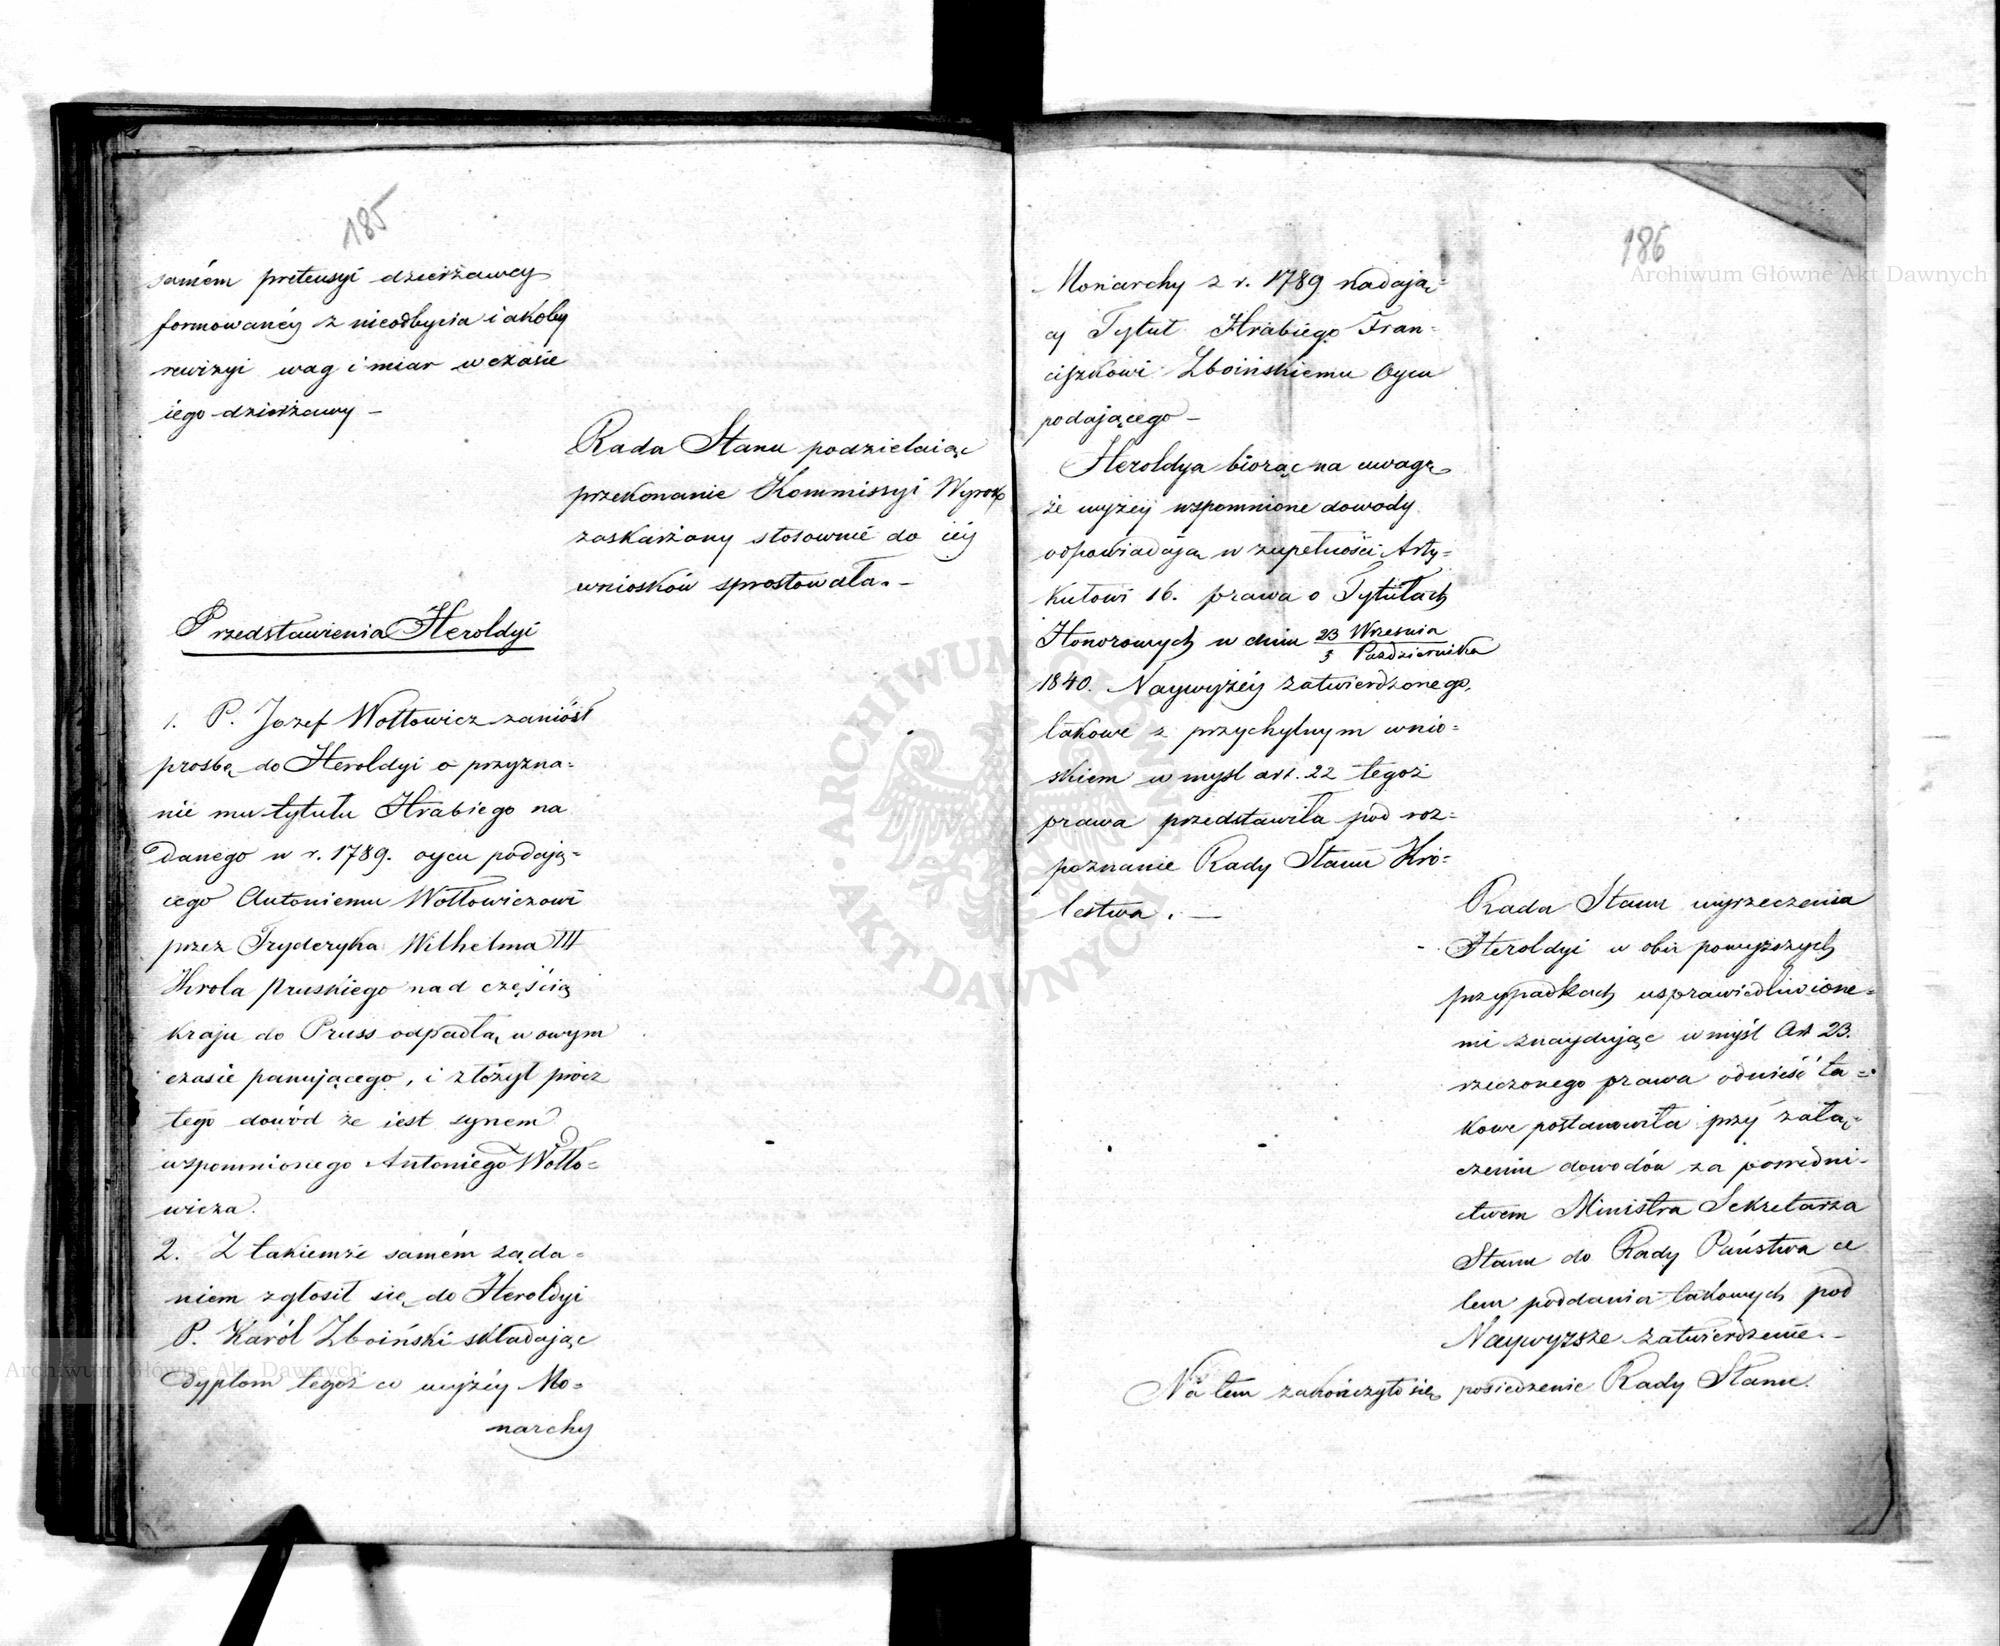 185
samém pretensyi dzierżawcy
formowanéy z nieodbycia iakoby
rewizyi wag i miar w czasie
iego dzierżawy –
Rada Stanu podzielaiąc
przekonanie Kommissyi Wyrok
zaskarżony stosownie do iéy
wniosków sprostowała. –
Przedstawienia Heroldyi
1. P. Jozef Wołłowicz zaniósł
prosbę do Heroldyi o przyzna=
nie mu tytułu Hrabiego na
danego w r. 1789. oycu podają=
cego Antoniemu Wołłowiczowi
przez Fryderyka Wilhelma III
Krola Pruskiego nad częścią
kraju do Pruss odpadłą w owym
czasie panującego, i złożył prócz
tego dowód że iest synem
wspomnionego Antoniego Wołło=
wicza.
2. Z takiemże samém żąda=
niem zgłosił się do Heroldyi
P. Karól Zboiński składając
dyplom tegoż co wyżéy Mo=
narchy
186
Monarchy z r. 1789 nadają=
cy Tytuł Hrabiego Fran=
ciszkowi Zboińskiemu Oycu
podającego –
Heroldya biorąc na uwagę
że wyżéy wspomnione dowody
odpowiadają w zupełności Arty=
kułowi 16. prawa o Tytułach
Honorowych w dniu 23 Września
5 Października
1840. Naywyżéy zatwierdzonego,
takowe z przychylnym wnio=
skiem w mysl art. 22 tegoż
prawa przedstawiła pod roz=
poznanie Rady Stanu Kró=
lestwa. —
Rada Stanu wyrzeczenia
Heroldyi w obu powyższych
przypadkach usprawiedliwione=
mi znayduiąc w myśl Art 23.
rzeczonego prawa odnieść ta=
kowe postanowiła przy załą=
czeniu dowodów za pośredni-
ctwem Ministra Sekretarza
Stanu do Rady Państwa ce
lem poddania takowych pod
Naywyższe zatwierdzenie. –
Na tem zakończyło się posiedzenie Rady Stanu.
Archiwum Główne Akt Dawnych
Archiwum Główne Akt Dawnych
ARCHIWUM GŁÓWNE AKT DAWNYCH